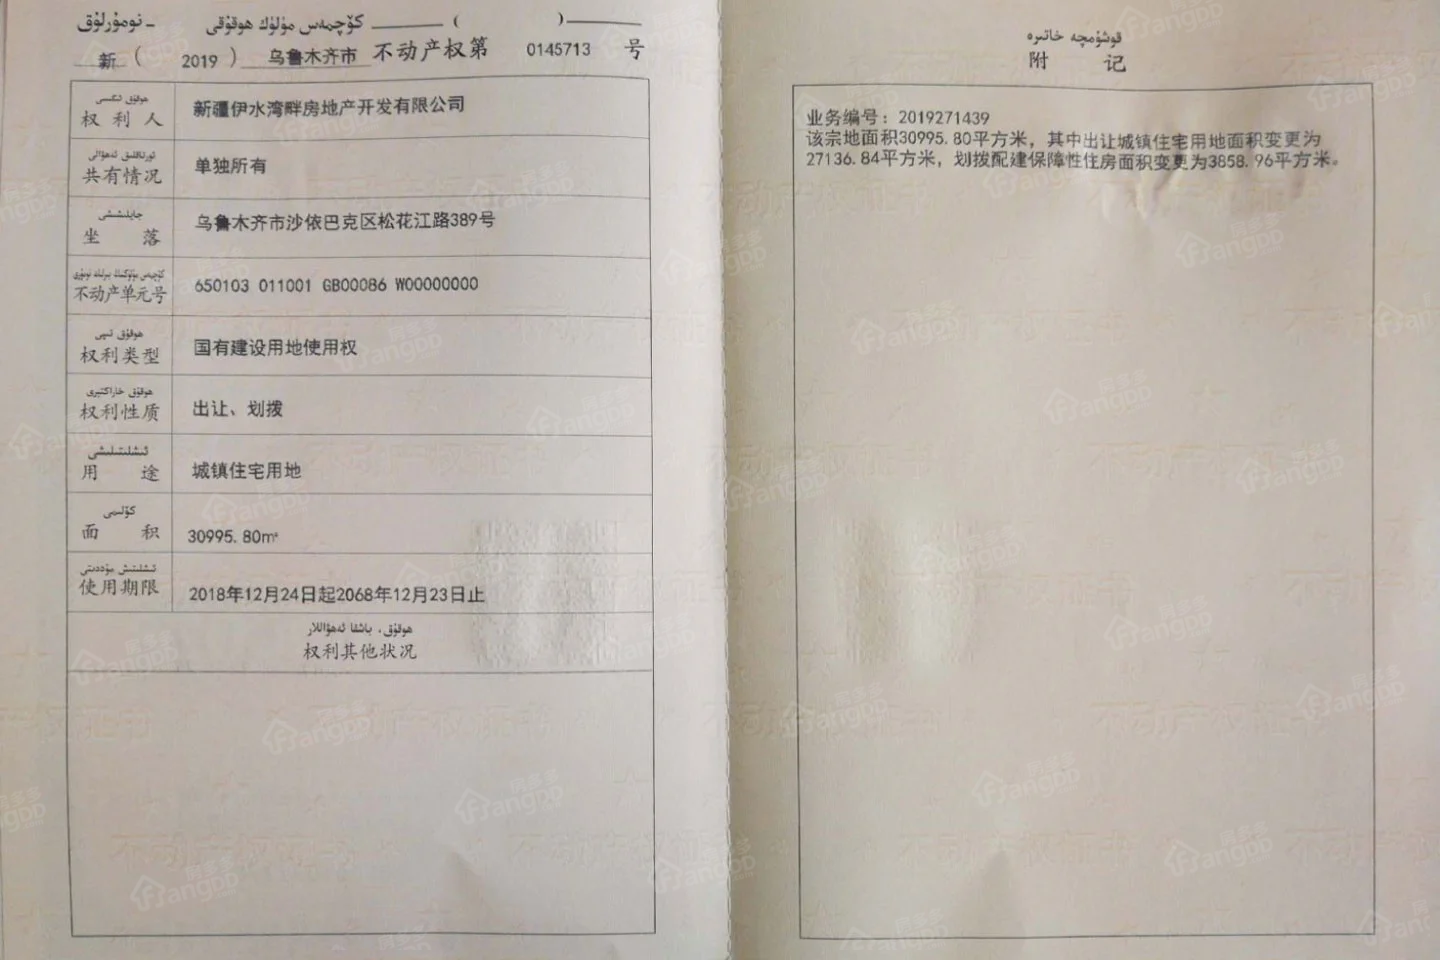 كۆچمەس مۈلۈك هوقۇقى ( ) - نومۇرلۇق
新 ( 2019 ) 乌鲁木齐市 不动产权第 0145713 号
هوقۇق ئىگىسى
权利人 新疆伊水湾畔房地产开发有限公司
ئورتاقلىق ئەھۋالى
共有情况 单独所有
جايلىشىشى
坐落 乌鲁木齐市沙依巴克区松花江路389号
كۆچمەس مۈلۈكنىڭ بىرلىك نومۇرى
不动产单元号 650103 011001 GB00086 W00000000
هوقۇق تىپى
权利类型 国有建设用地使用权
هوقۇق خاراكتېرى
权利性质 出让、划拨
ئىشلىتىلىشى
用途 城镇住宅用地
كۆلىمى
面积 30995.80㎡
ئىشلىتىش مۇددىتى
使用期限 2018年12月24日起2068年12月23日止
هوقۇق، باشقا ئەھۋاللار
权利其他状况
قوشۇمچە خاتىرە
附记
业务编号：2019271439
该宗地面积30995.80平方米，其中出让城镇住宅用地面积变更为
27136.84平方米，划拨配建保障性住房面积变更为3858.96平方米。